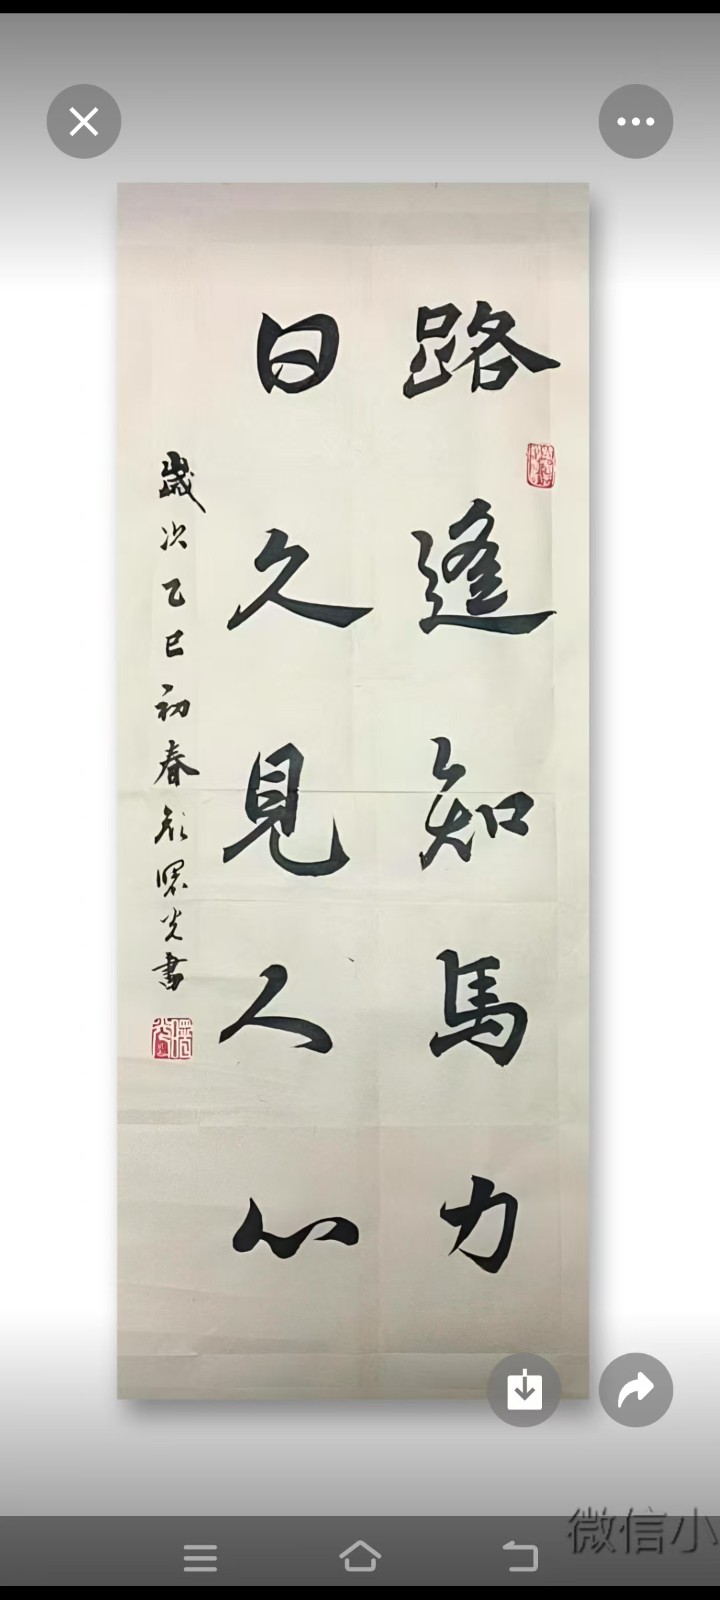 路遙知馬力
日久見人心
歲次乙巳初春彭曙光書
微信小